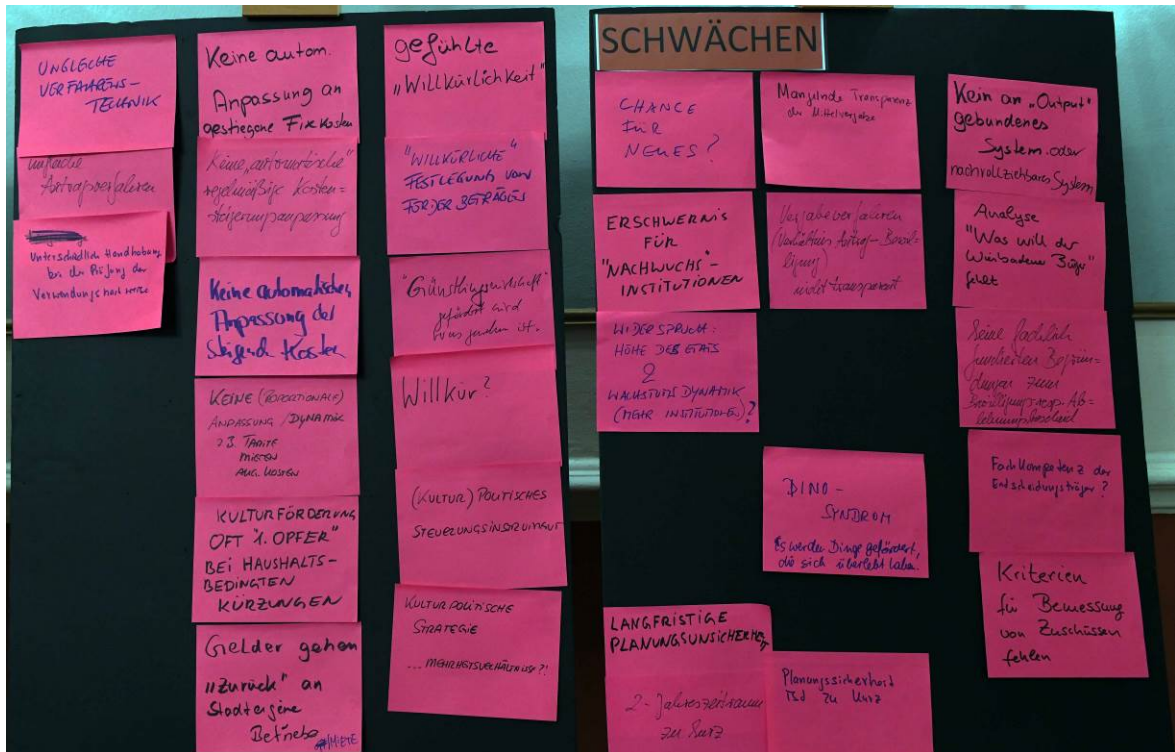 UNGLEICHE
VERFAHRENS-
TECHNIK
ungleiche
Antragsverfahren
Unterschiedlich Handhabung
bei der Prüfung der
Verwendungsnachweise
Keine autom.
Anpassung an
gestiegene Fixkosten
Keine „automatische"
regelmäßige Kosten=
steigerungsanpassung
Keine automatischen
Anpassung der
steigende Kosten
KEINE (PROPORTIONALE)
ANPASSUNG / DYNAMIK
z.B. TARIFE
MIETEN
ALLG. KOSTEN
KULTURFÖRDERUNG
OFT "1. OPFER"
BEI HAUSHALTS-
BEDINGTEN
KÜRZUNGEN
Gelder gehen
„Zurück" an
Stadteigene
Betriebe
MIETE
gefühlte
„Willkürlichkeit"
"WILLKÜRLICHE"
FESTLEGUNG VON
FÖRDERBETRÄGEN
"Günstlingswirtschaft"
gefördert wird
was gesehen ist.
Willkür?
(KULTUR) POLITISCHES
STEUERUNGSINSTRUMENT
KULTURPOLITISCHE
STRATEGIE
... MEHRHEITSVERHÄLTNISSE?!
SCHWÄCHEN
CHANCE
FÜR
NEUES?
ERSCHWERNIS
FÜR
"NACHWUCHS"-
INSTITUTIONEN
WIDERSPRUCH:
HÖHE DES ETATS
WACHSTUMSDYNAMIK
(MEHR INSTITUTIONEN)?
LANGFRISTIGE
PLANUNGSUNSICHERHEIT
2-Jahreszeitraum
zu kurz
Mangelnde Transparenz
der Mittelvergabe
Vergabeverfahren
(Verhältnis Antrag-Bewil-
ligung)
nicht transparent
DINO-
SYNDROM
Es werden Dinge gefördert,
die sich überlebt haben.
Planungssicherheit
ist zu kurz
Kein an „Output"
gebundenes
System oder
nachvollziehbares System
Analyse
"Was will der
Wiesbadener Bürger"
fehlt
Keine fachlich
fundierten Begrün=
dungen zum
Bewilligungs resp. Ab=
lehnungsbescheid
Fachkompetenz der
Entscheidungsträger?
Kriterien
für Bemessung
von Zuschüssen
fehlen